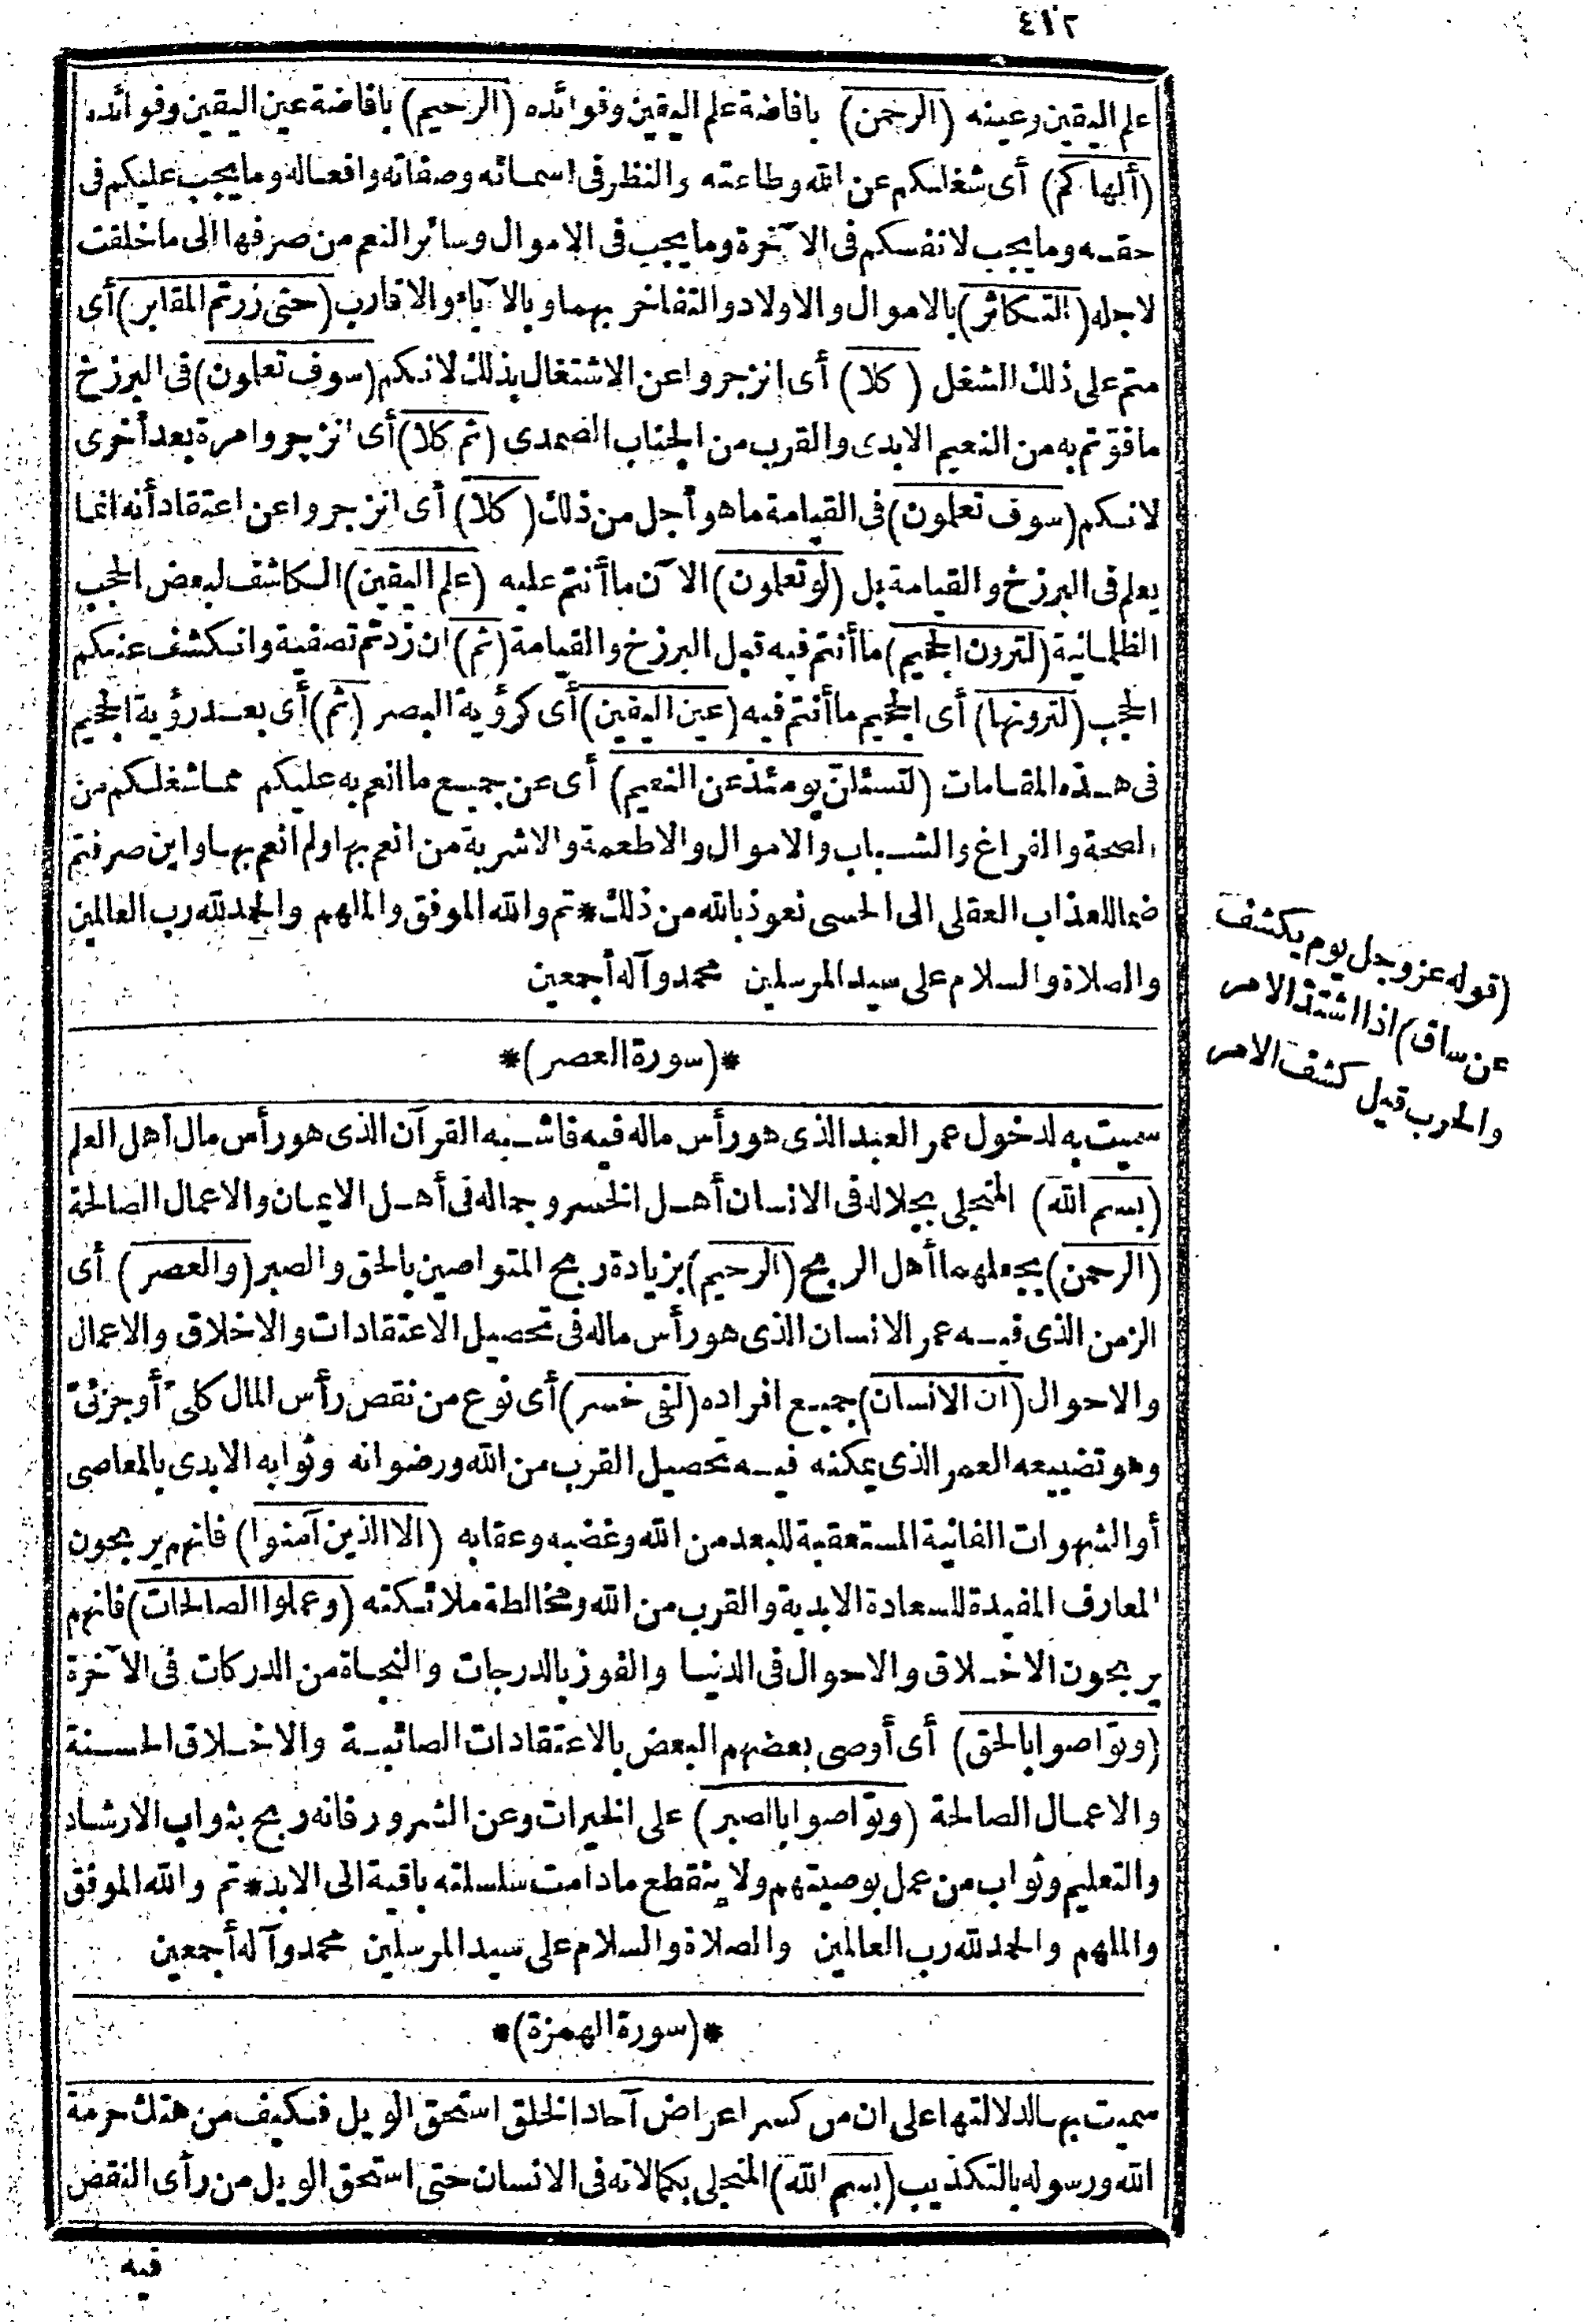 ٤١٢
علم اليقين وعينه (الرحمن) بافاضة علم اليقين وفوائده (الرحيم) بافاضة عين اليقين وفوائده
(ألهاكم) أى شغلكم عن الله وطاعته والنظر فى اسمائه وصفاته وافعاله وما يجب عليكم فى
حقه وما يجب لانفسكم فى الآخرة وما يجب فى الاموال وسائر النعم من صرفها الى ما خلقت
لاجله (التكاثر) بالاموال والاولاد والتفاخر بهما وبالآباء والاقارب (حتى زرتم المقابر) أى
متم على ذلك الشغل (كلا) أى انزجروا عن الاشتغال بذلك لانكم (سوف تعلمون) فى البرزخ
ما فوّتم به من النعيم الابدى والقرب من الجناب الصمدى (ثم كلا) أى انزجروا مرة بعد أخرى
لانكم (سوف تعلمون) فى القيامة ما هو أجل من ذلك (كلا) أى انزجروا عن اعتقاد أنه انما
يعلم فى البرزخ والقيامة بل (لو تعلمون) الآن ما أنتم عليه (علم اليقين) الكاشف لبعض الحجب
الظلمانية (لترون الجحيم) ما أنتم فيه قبل البرزخ والقيامة (ثم) ان زدتم تصفية وانكشف عنكم
الحجب (لترونها) أى الجحيم ما أنتم فيه (عين اليقين) أى كرؤية البصر (ثم) أى بعد رؤية الجحيم
فى هذه المقامات (لتسئلنّ يومئذ عن النعيم) أى عن جميع ما انعم به عليكم مما شغلكم من
الصحة والفراغ والشباب والاموال والاطعمة والاشربة من انعم بها ولم انعم بها واين صرفتم
ضما للعذاب العقلى الى الحسى نعوذ بالله من ذلك * تم والله الموفق والملهم والحمد لله رب العالمين
والصلاة والسلام على سيد المرسلين محمد وآله أجمعين
*(سورة العصر)*
سميت به لدخول عمر العبد الذى هو رأس ماله فيه فاشبه القرآن الذى هو رأس مال أهل العلم
(بسم الله) المتجلى بجلاله فى الانسان أهل الخسر وجماله فى أهل الايمان والاعمال الصالحة
(الرحمن) بجعلهما أهل الربح (الرحيم) بزيادة ربح المتواصين بالحق والصبر (والعصر) أى
الزمن الذى فيه عمر الانسان الذى هو رأس ماله فى تحصيل الاعتقادات والاخلاق والاعمال
والاحوال (ان الانسان) جميع افراده (لفى خسر) أى نوع من نقص رأس المال كلىّ أو جزئىّ
وهو تضييعه العمر الذى يمكنه فيه تحصيل القرب من الله ورضوانه وثوابه الابدى بالمعاصى
أو الشهوات الفانية المستعقبة للبعد من الله وغضبه وعقابه (الا الذين آمنوا) فانهم يربحون
المعارف المفيدة للسعادة الابدية والقرب من الله ومخالطة ملائكته (وعملوا الصالحات) فانهم
يربحون الاخلاق والاحوال فى الدنيا والفوز بالدرجات والنجاة من الدركات فى الآخرة
(وتواصوا بالحق) أى أوصى بعضهم البعض بالاعتقادات الصائبة والاخلاق الحسنة
والاعمال الصالحة (وتواصوا بالصبر) على الخيرات وعن الشرور فانه ربح بثواب الارشاد
والتعليم وثواب من عمل بوصيتهم ولا ينقطع مادامت سلسلته باقية الى الابد * تم والله الموفق
والملهم والحمد لله رب العالمين والصلاة والسلام على سيد المرسلين محمد وآله أجمعين
*(سورة الهمزة)*
سميت بها لدلالتها على ان من كسر اعراض آحاد الخلق استحق الويل فكيف من هتك حرمة
الله ورسوله بالتكذيب (بسم الله) المتجلى بكمالاته فى الانسان حتى استحق الويل من رأى النقص
فيه
(قوله عز وجل يوم يكشف
عن ساق) اذا اشتدّ الامر
والحرب قيل كشف الامر